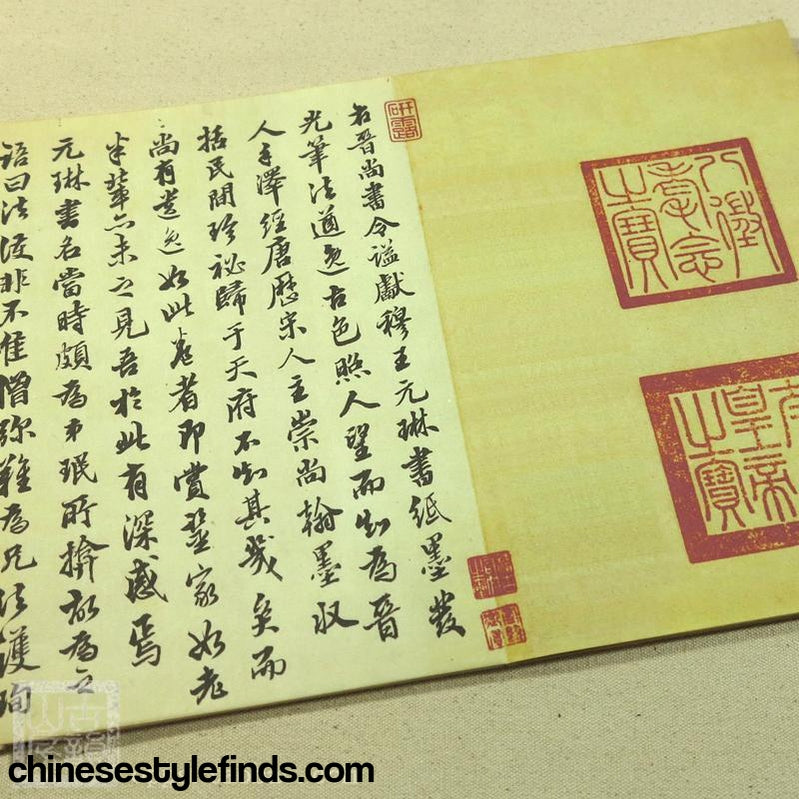 八徵耄念之寶
皇帝之寶
研露
右晉尚書令謚獻穆王元琳書紙墨發
光筆法遒逸古色照人望而知為晉
人手澤經唐歷宋人主崇尚翰墨收
括民間珍祕歸于天府不知其幾矣而
尚有遺逸如此卷者即賞鑒家如老
米輩亦未之見吾於此有深感焉
元琳書名當時頗為弟珉所揜故為之
語曰法護非不佳僧彌難為兄法護珣
chinesestylefinds.com